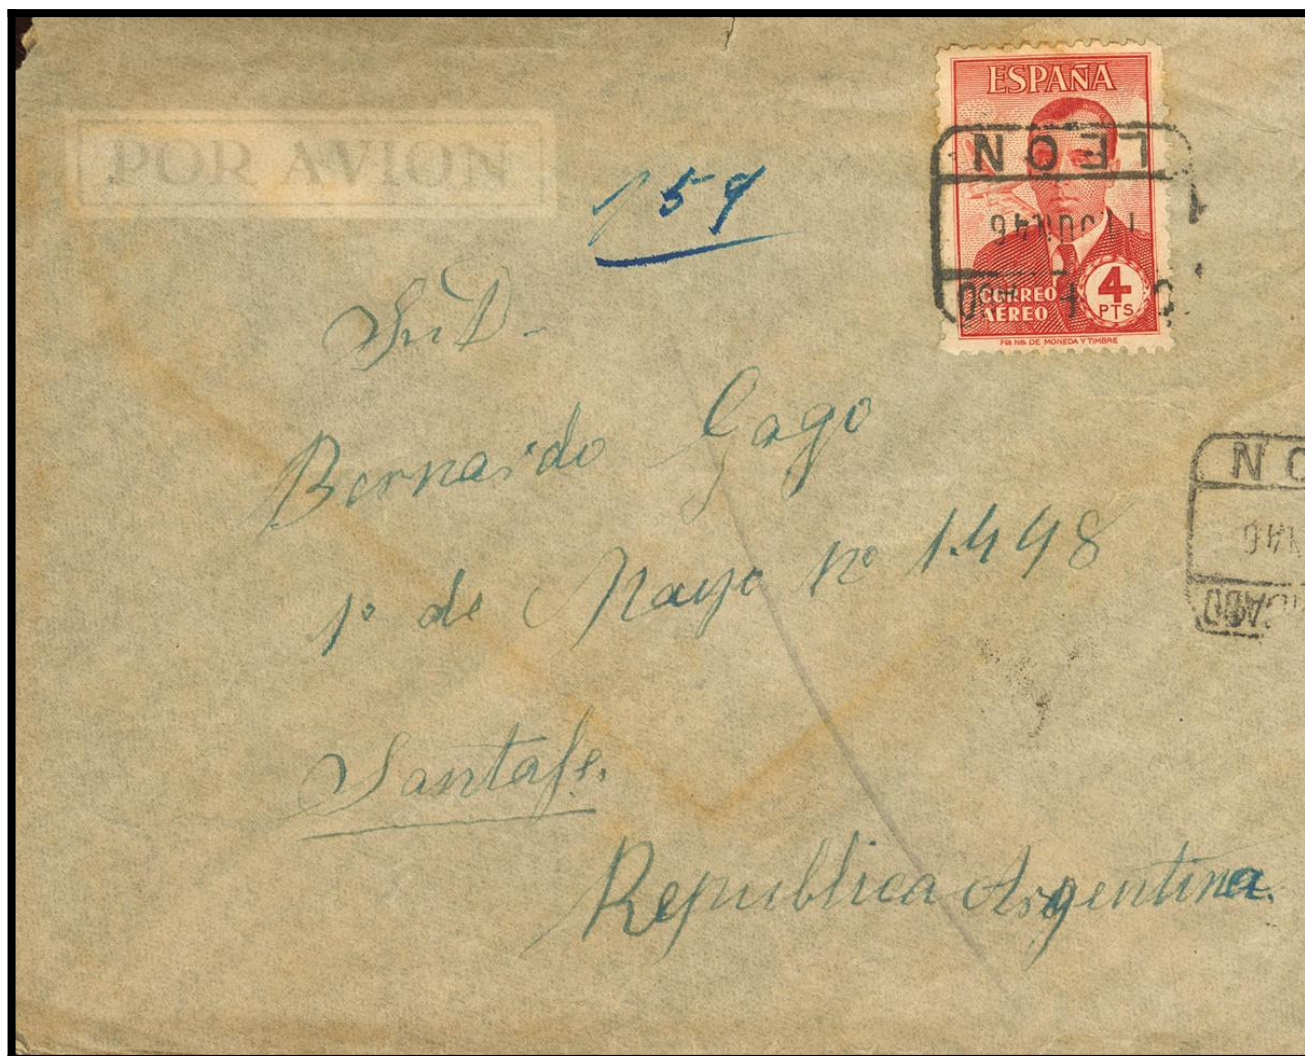 POR AVION
159
ESPAÑA
LEON
11 JUN 46
CORREO
AÉREO
4
PTS
DE MONEDA Y TIMBRE
Sr. D.
Bernardo Gago
1º de Mayo nº 1.448
Santafe.
Republica Argentina.
ON
N46